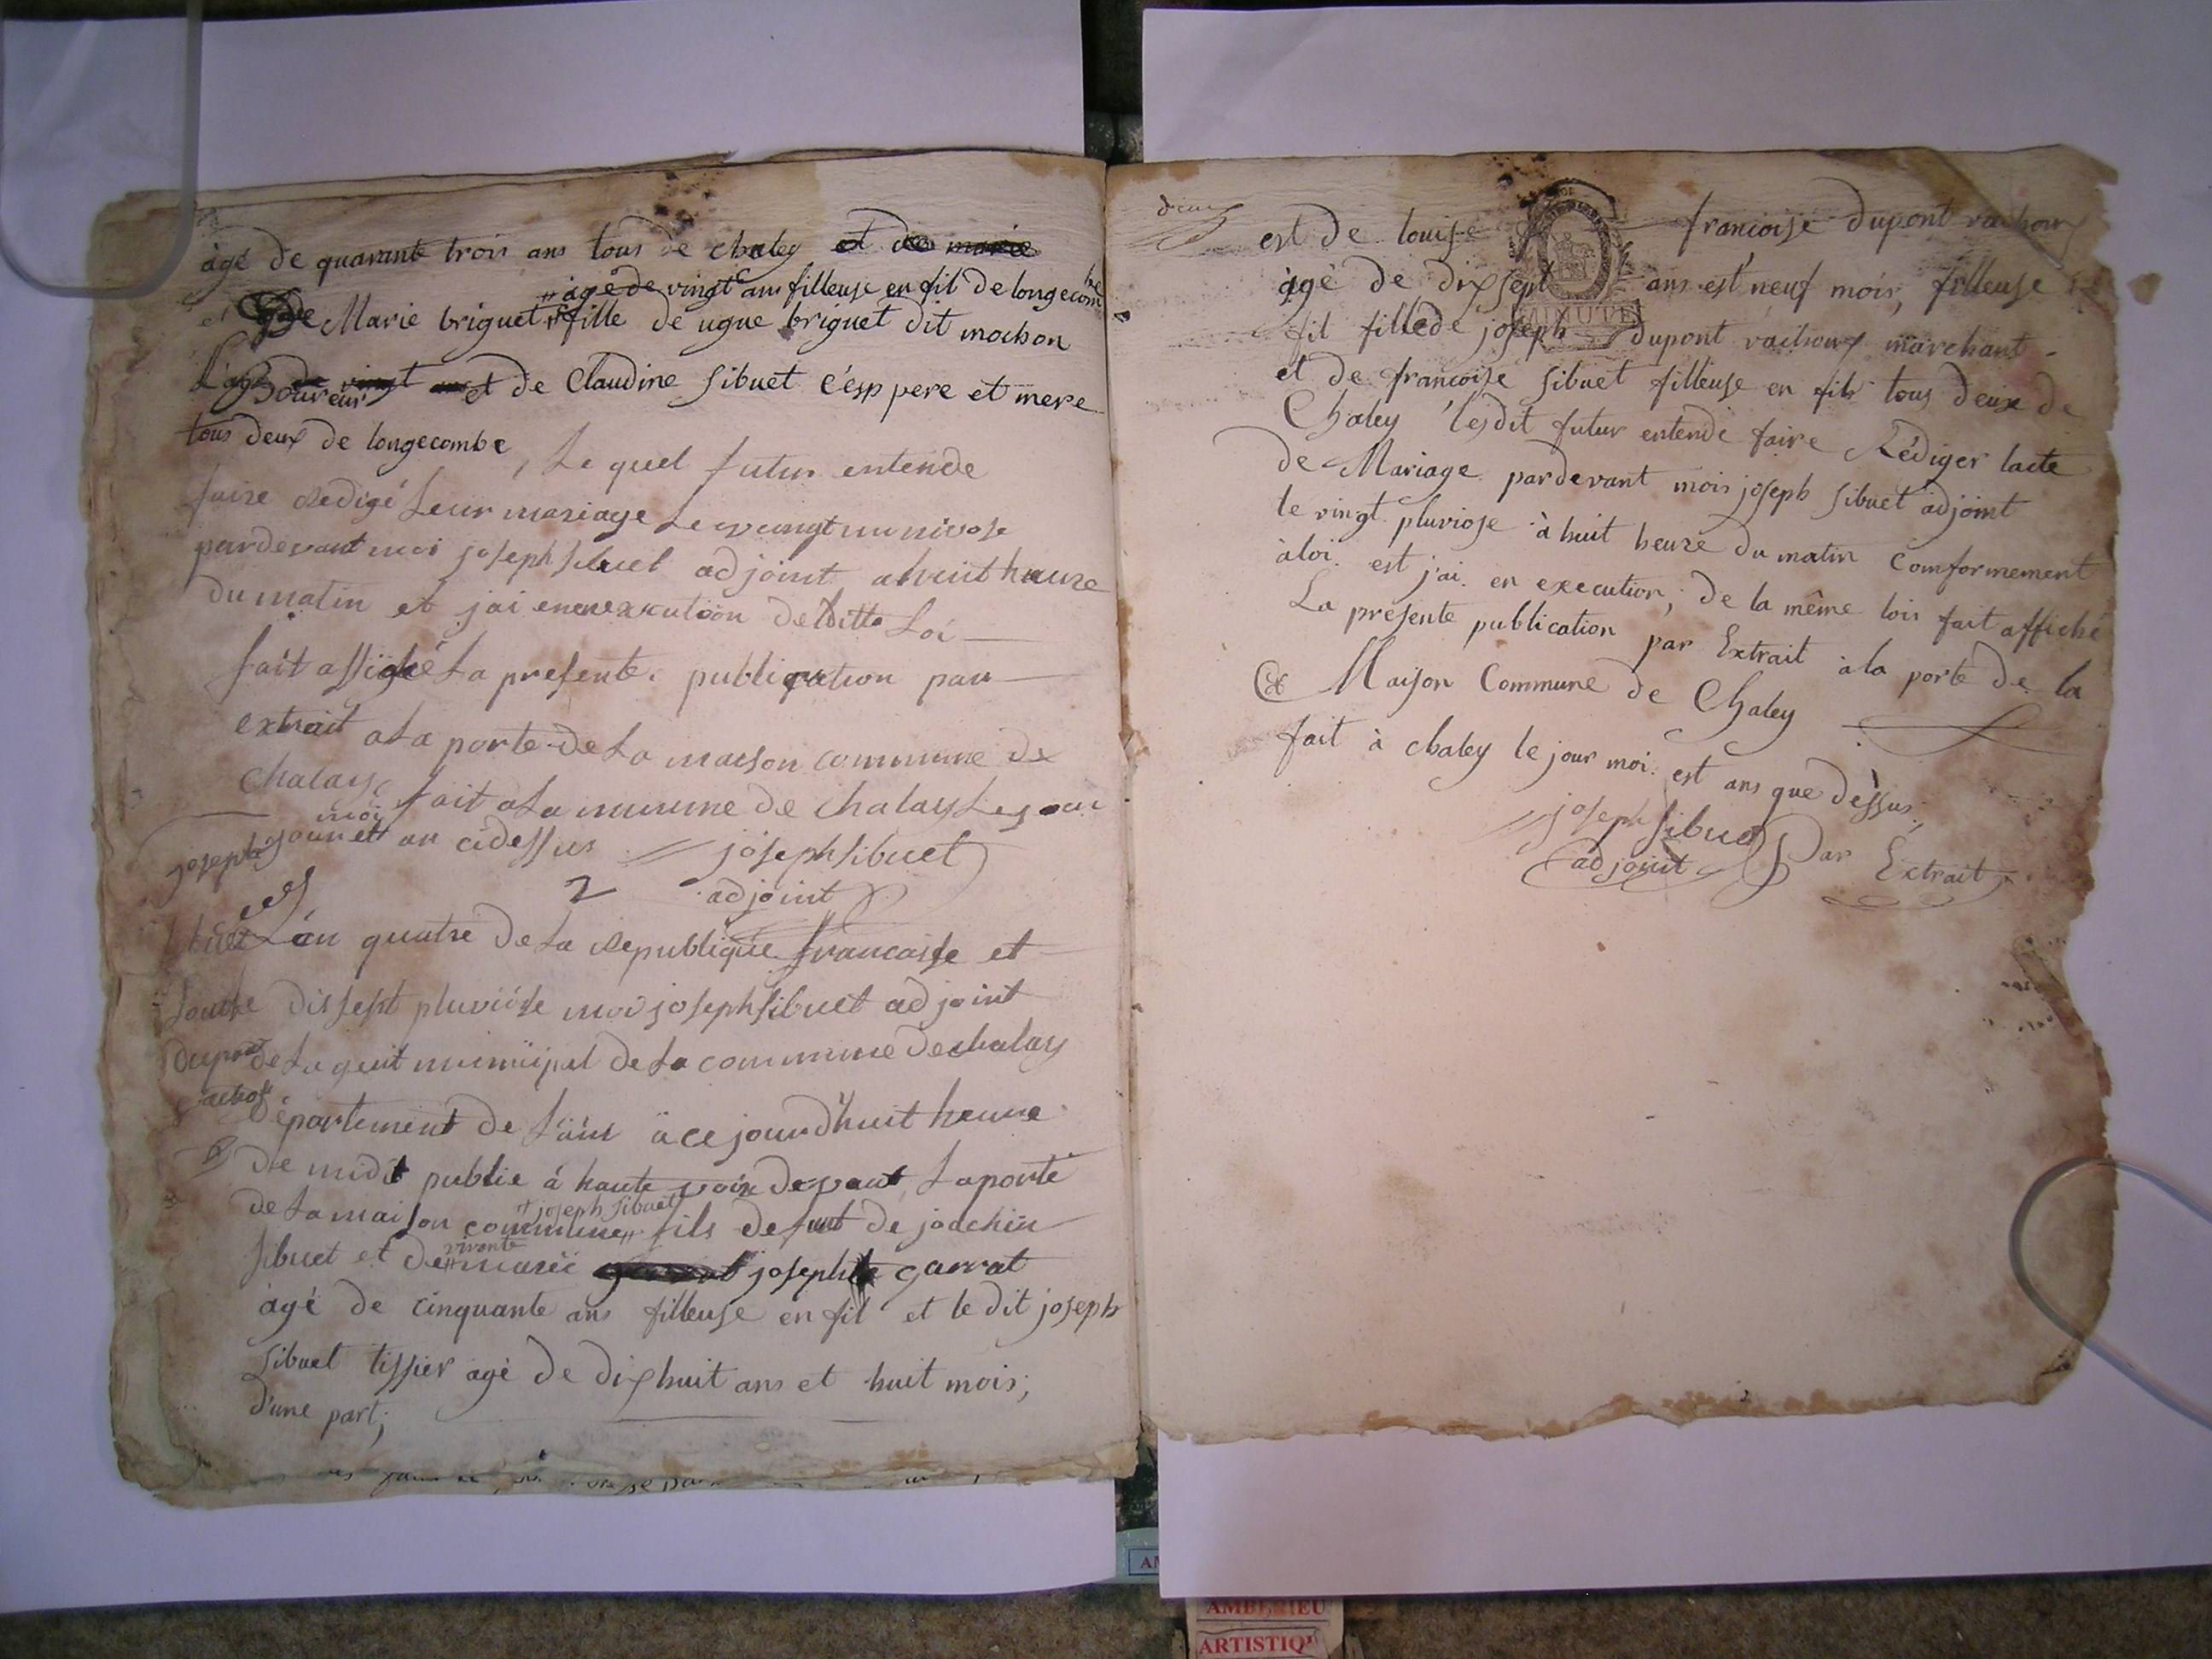 âgé de quarante trois ans tous de chaley et de marie
"âgé de vingt ans filleuse en fil de longecombe
et de Marie briguet "fille de ugue briguet dit mochon
Laboureur et de Claudine Sibuet c'esp pere et mere
tous deux de longecombe, Le quel futur entende
faire Redigé Leur mariage Le vingt un nivose
pardevant moi joseph sibuet adjoint a huit heure
du matin et jai en execution de ditte Loi
fait affiché La presente publication par
extrait a La porte de La maison commune de
Chalay fait a La mmune de chalay Le jour
moi
jour et an cidessus joseph sibuet
adjoint
2
joseph
sibuet
Louise
dupont
vachou
L'an quatre de La Republique francaise et
dis sept pluviôse moi joseph sibuet adjoint
de La gent municipal de La commune de chalay
département de L'ain a ce jourd'huit heure
de midi publie á haute voix devant La porte
et joseph sibuet
de La maison commune " fils defunt de joachin
vivante
sibuet et de " marië josephte garrat
âgé de cinquante ans filleuse en fil et le dit joseph
Sibuet tissier agé de dix huit ans et huit mois,
d'une part;
est de louise francoise dupont vachoux
âgé de dix sept ans est neuf mois, filleuse
MINUTE
fil fille de joseph dupont vachoux marchant
et de francoise sibuet filleuse en fils tous deux de
Chaley lesdit futur entende faire Rédiger lacte
de Mariage pardevant mois joseph sibuet adjoint
le vingt pluviose à huit heure du matin Comformement
à loi est j'ai en execution, de la même lois fait affiché
La presente publication par Extrait à la porte de la
Maison Commune de Chaley
fait à chaley le jour moi est ans que dessus,
joseph sibuet
adjoint Par Extrait
AMBERIEU
ARTISTIQU